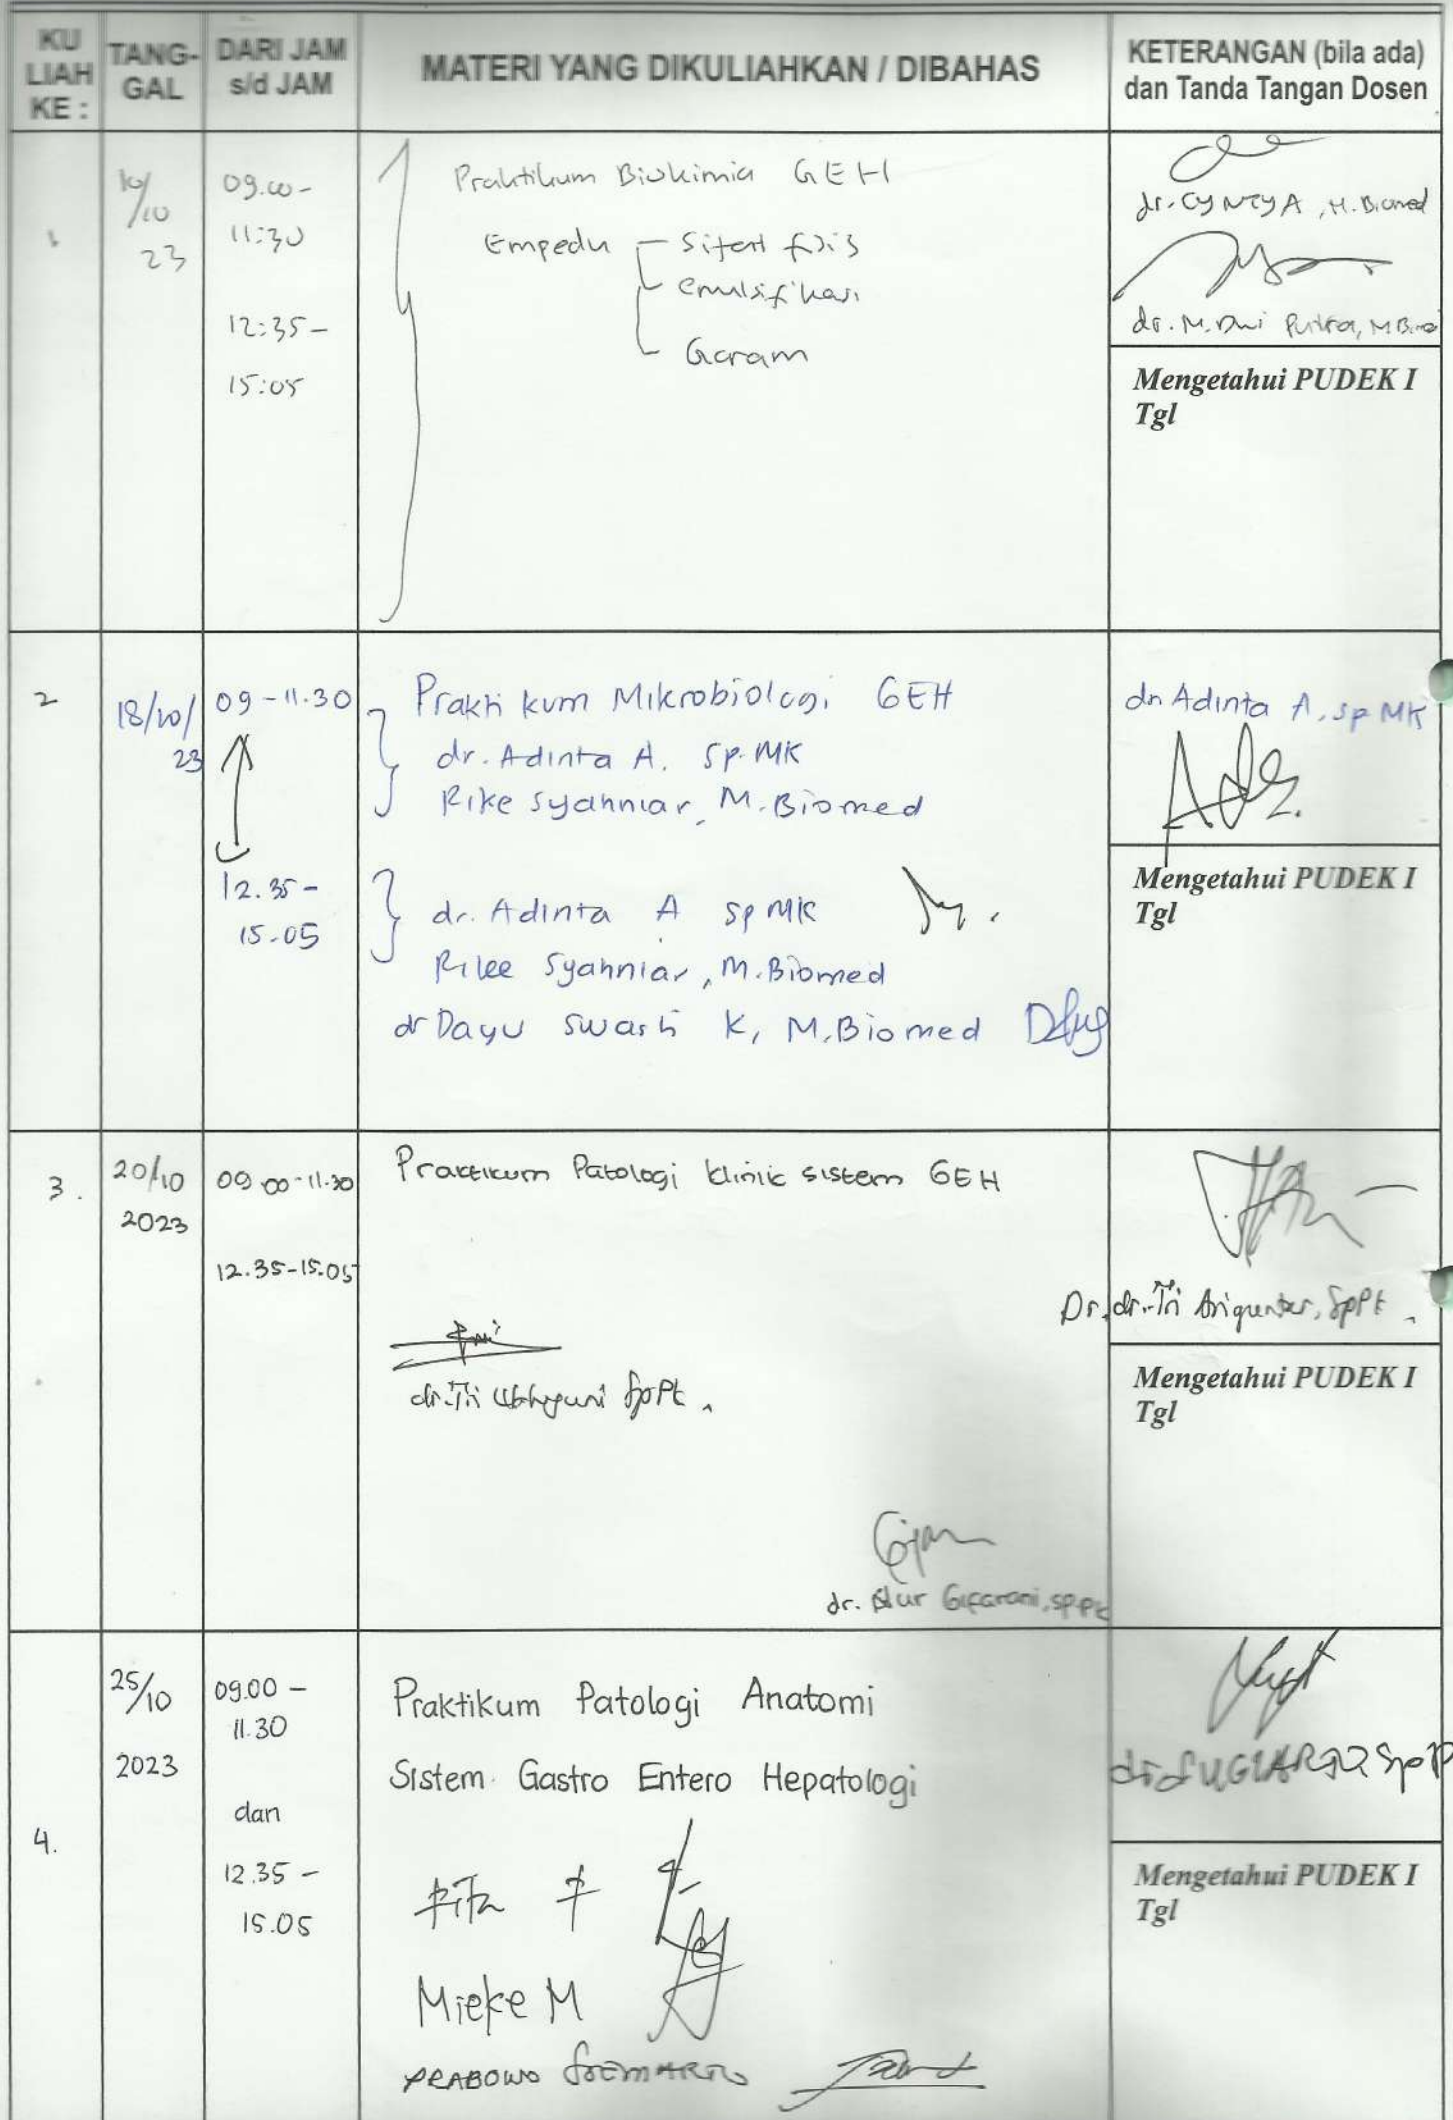 KU LIAH KE :
TANG- GAL
DARI JAM s/d JAM
MATERI YANG DIKULIAHKAN / DIBAHAS
KETERANGAN (bila ada) dan Tanda Tangan Dosen
1
10/10
23
09.00 -
11:30
12:35 -
15:05
Praktikum Biokimia GEH
Empedu
Sifat fisis
emulsifikasi
Garam
dr. CYNTYA, M.Biomed
dr. M. Dwi Putra, M Biomed
Mengetahui PUDEK I
Tgl
2
18/10/
23
09 - 11.30
12.35 -
15.05
Praktikum Mikrobiologi GEH
dr. Adinta A. Sp.MK
Rike Syahniar, M.Biomed
dr. Adinta A Sp MK
Rike Syahniar, M.Biomed
dr Dayu Swasti K, M.Biomed
dr. Adinta A, Sp MK
Mengetahui PUDEK I
Tgl
3.
20/10
2023
09.00-11.30
12.35-15.05
Praktikum Patologi klinik sistem GEH
dr. Tri
SpPK
dr. Nur Gifarani, Sp.PK
Dr. dr. Tri
SpPK
Mengetahui PUDEK I
Tgl
4.
25/10
2023
09.00 -
11.30
dan
12.35 -
15.05
Praktikum Patologi Anatomi
Sistem Gastro Entero Hepatologi
Mieke M
PRABOWO SOEMARTO
dr SUGIARTO SpPA
Mengetahui PUDEK I
Tgl